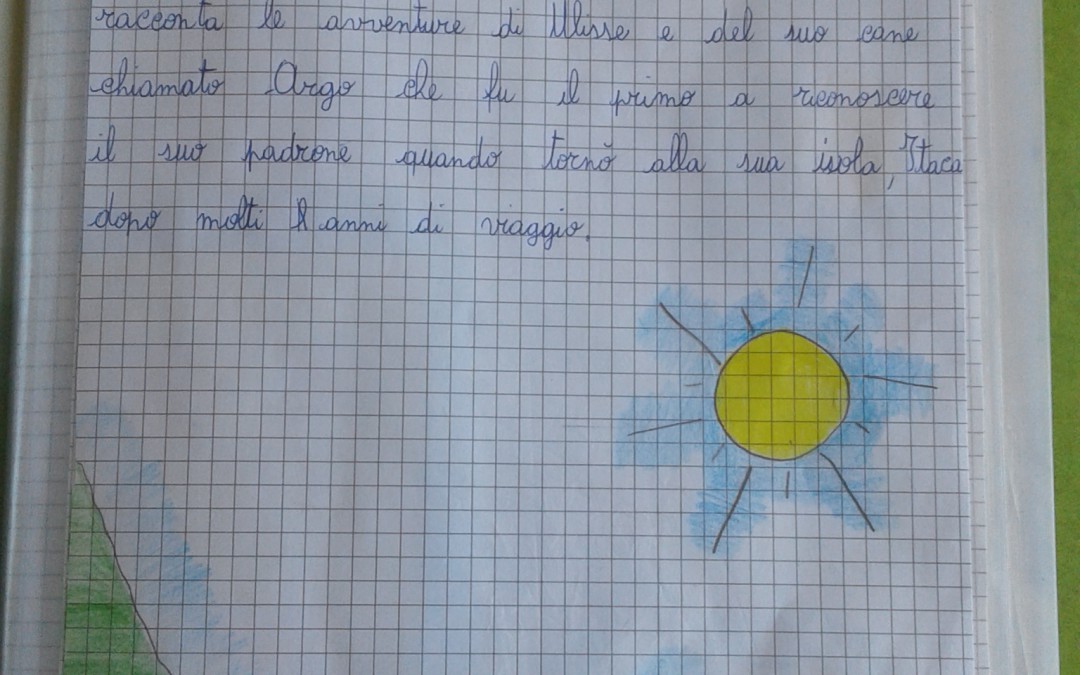 racconta le avventure di Ulisse e del suo cane
chiamato Argo che fu il primo a riconoscere
il suo padrone quando tornò alla sua isola, Itaca
dopo molti anni di viaggio.